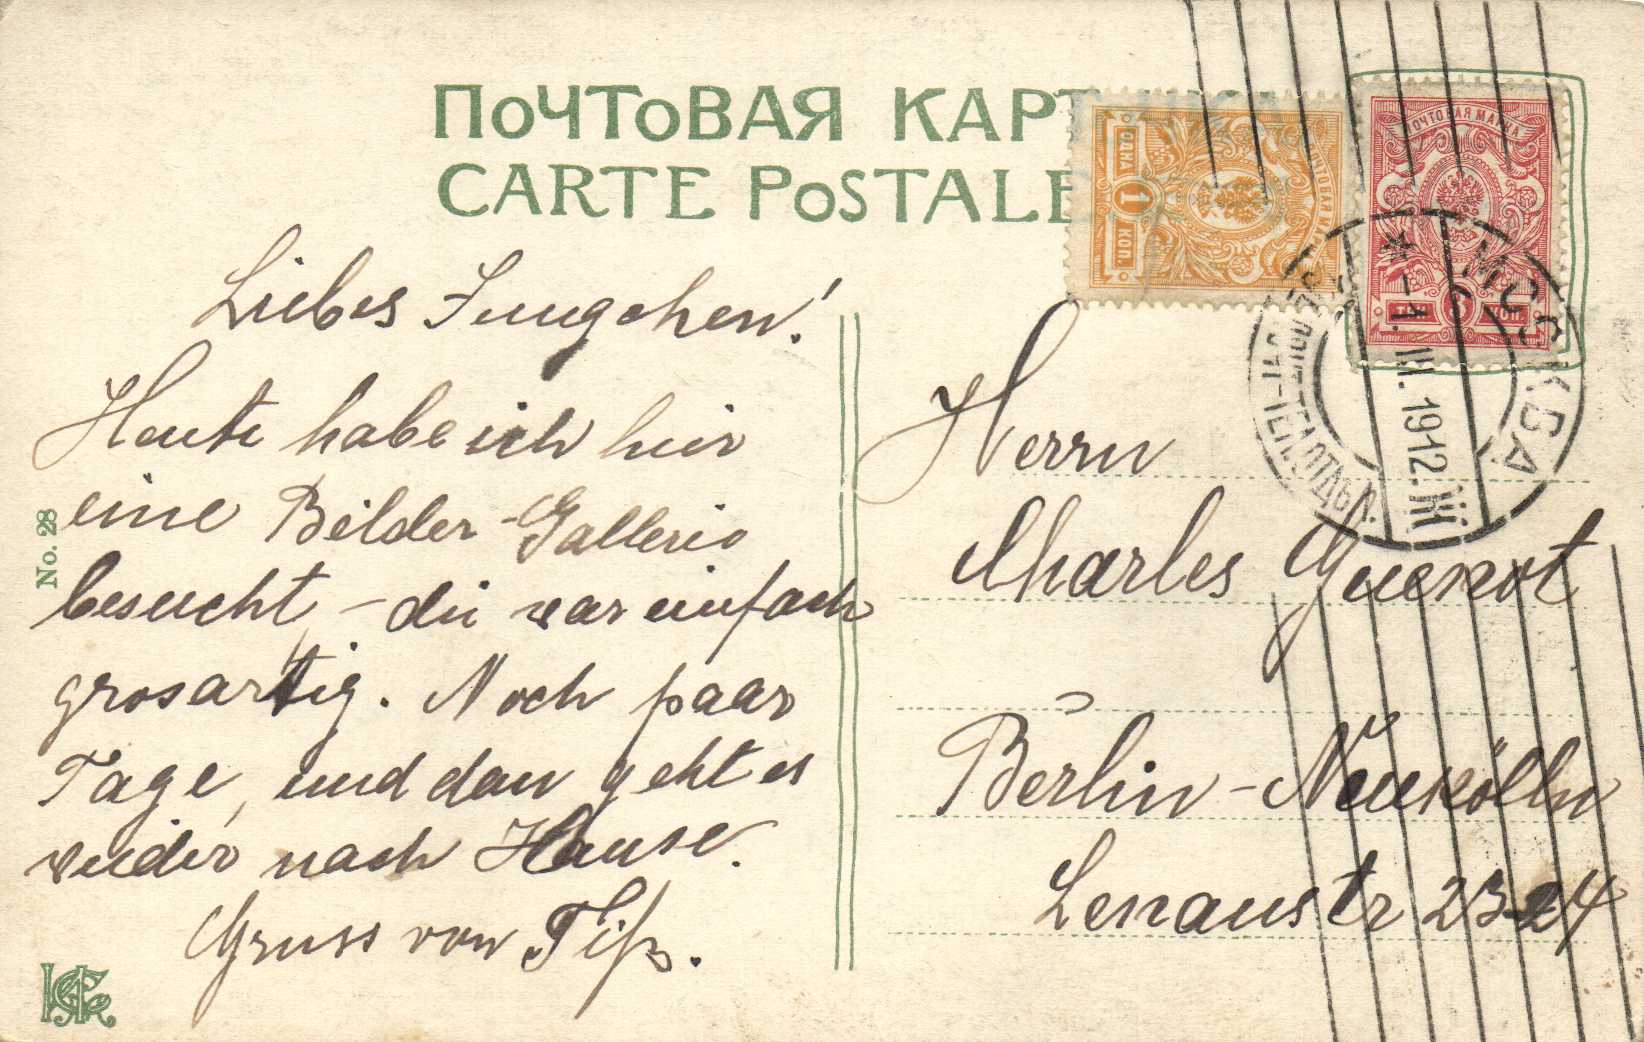 ПОЧТОВАЯ КАРТ
CARTE POSTALE
ОДНА
1
КОП.
ПОЧТОВАЯ М
ПОЧТОВАЯ МАРКА
3
КОП.
МОСКВА
* -1. III. 1912. Ж
Liebes Jungchen!
Heute habe ich hier
eine Bilder-Gallerie
besucht – die war einfach
grosartig. Noch paar
Tage, und dan geht es
wieder nach Hause.
Gruss von
Herrn
Charles Guenot
Berlin-Neukölln
Lenaustr 23-24
No. 28